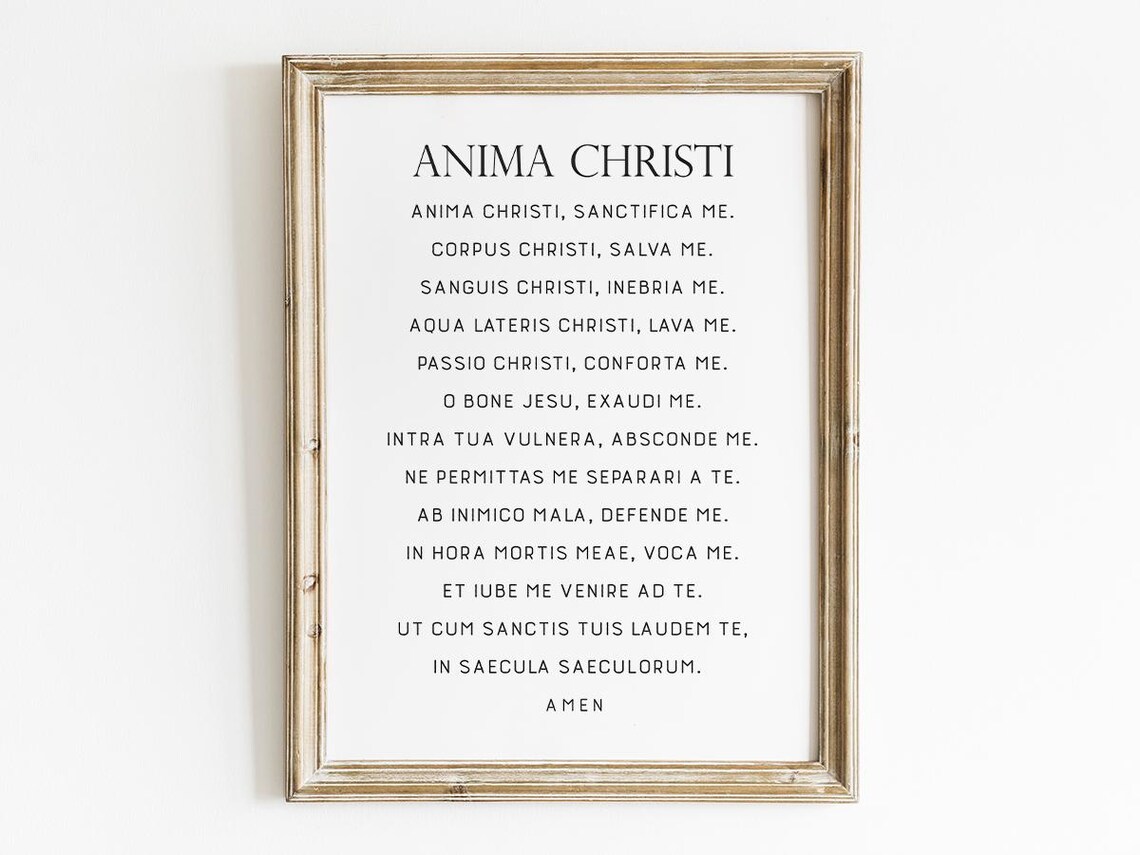 ANIMA CHRISTI
ANIMA CHRISTI, SANCTIFICA ME.
CORPUS CHRISTI, SALVA ME.
SANGUIS CHRISTI, INEBRIA ME.
AQUA LATERIS CHRISTI, LAVA ME.
PASSIO CHRISTI, CONFORTA ME.
O BONE JESU, EXAUDI ME.
INTRA TUA VULNERA, ABSCONDE ME.
NE PERMITTAS ME SEPARARI A TE.
AB INIMICO MALA, DEFENDE ME.
IN HORA MORTIS MEAE, VOCA ME.
ET IUBE ME VENIRE AD TE.
UT CUM SANCTIS TUIS LAUDEM TE,
IN SAECULA SAECULORUM.
AMEN